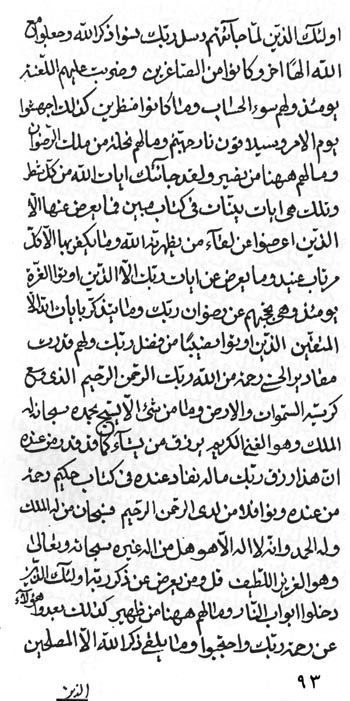 اولئك الذين لما جائتهم رسل ربك نسوا ذكر الله وجعلوا مع
الله الها اخر وكانوا من الصاغرين وضربت عليهم اللعنة
يومئذ ولهم سوء الحساب وما كانوا منظرين كذلك اجهضوا
يوم الامر وسيلاقون نار جهنم وما لهم نحلة من ملك الرضوان
وما لهم ههنا من نصير ولقد جائتك ايات الله من كل شطر
وتلك هي ايات بينات في كتاب مبين فما يعرض عنها الا
الذين اعرضوا عن لقاء من يظهره الله وما يكفر بها الا كل
مرتاب عنيد وما يعرض عن ايات ربك الا الذين اوتوا الغرة
يومئذ وهي عن رضوان ربك وما يتذكر بايات الله الا
المتقين الذين اوتوا نصيبا من فضل ربك ولهم قدرت
مقادير الحسنى رحمة من الله ربك الرحمن الرحيم الذي وسع
كرسيه السموات والارض وما من شئ الا يسبح بحمده سبحانه له
الملك وهو الغني الكريم يرزق من يشاء كما قد قدر من عنده
ان هذا رزق ربك ماله نفاد عنده في كتاب حكيم رحمة
من عنده ونوافلا من لدى الرحمن الرحيم فسبحان من له الملك
وله الحمد وانه لا اله الا هو هل من اله غيره سبحانه وتعالى
وهو العزيز اللطيف قل ومن يعرض عن ذكر ربه اولئك الذين
دخلوا ابواب النار وما لهم ههنا من ظهير كذلك بعدوا هؤلاء
عن رحمة ربك واحتجبوا وما يلقى ذكر الله الا المصلحين
٩٣
الذين